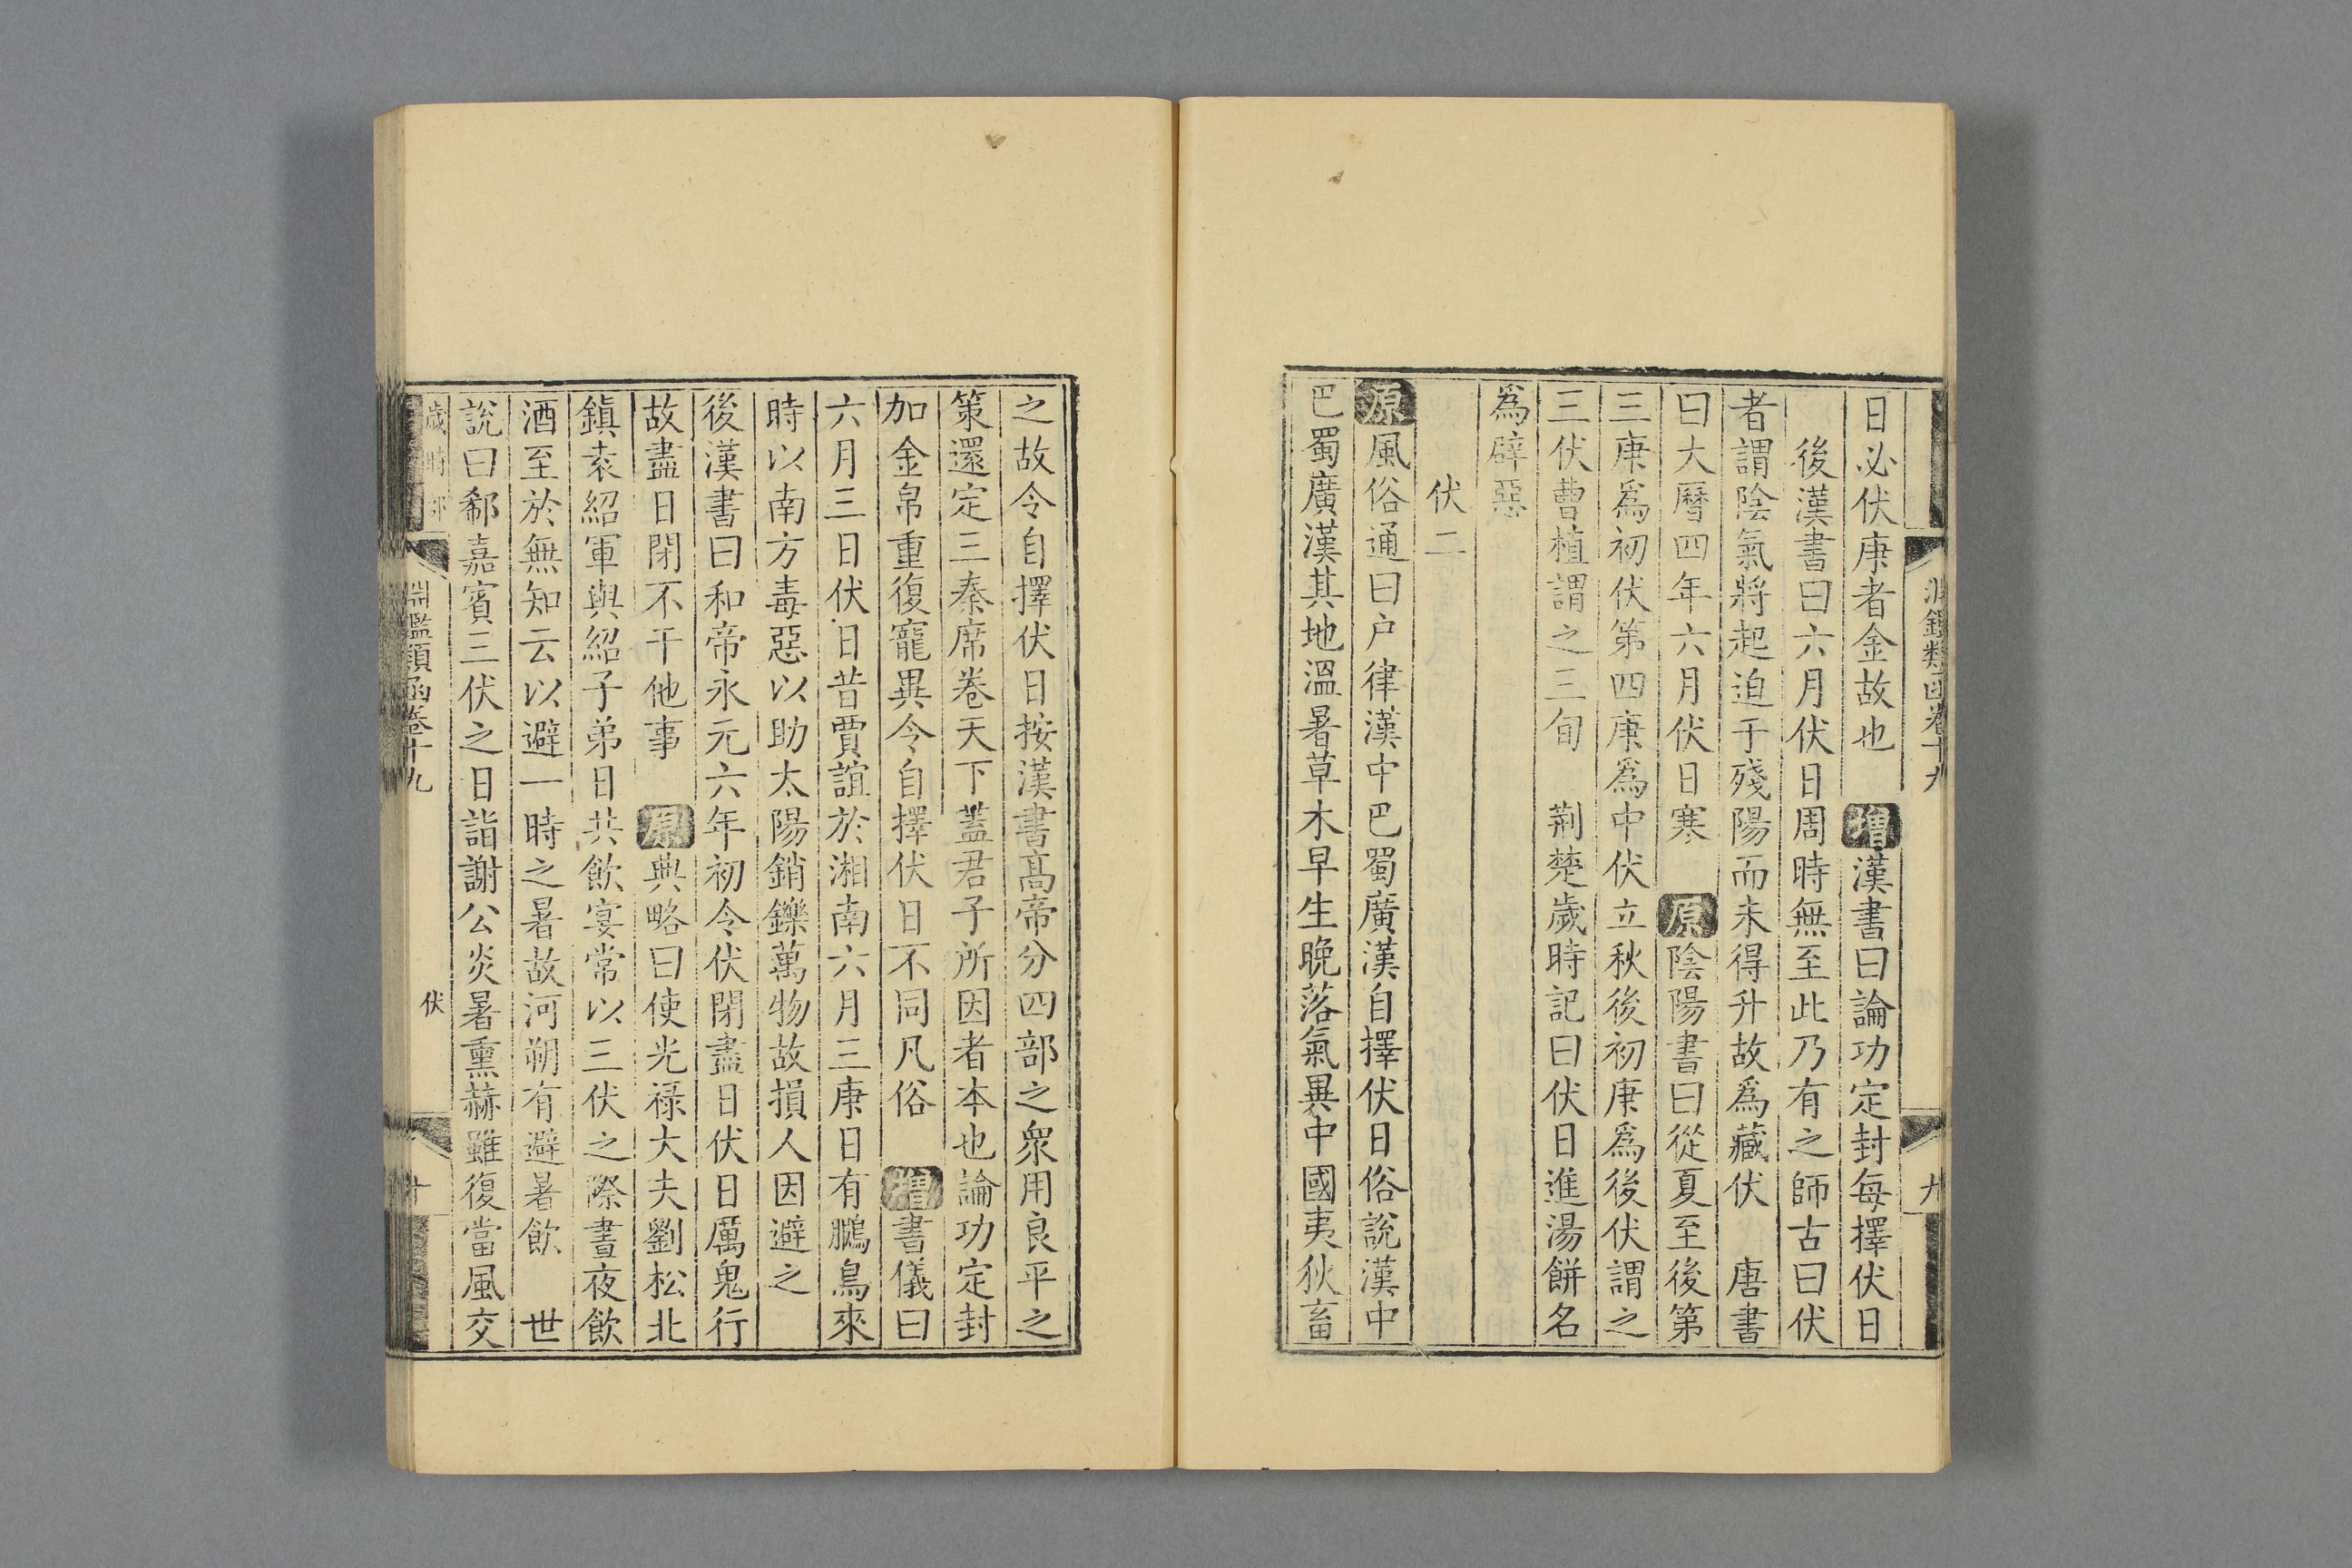 淵鑑類函卷十九
九
日必伏庚者金故也 增漢書曰論功定封每擇伏日
後漢書曰六月伏日周時無至此乃有之師古曰伏
者謂陰氣將起迫于殘陽而未得升故爲藏伏 唐書
曰大曆四年六月伏日寒 原陰陽書曰從夏至後第
三庚爲初伏第四庚爲中伏立秋後初庚爲後伏謂之
三伏曹植謂之三旬 荆楚歲時記曰伏日進湯餅名
爲辟惡
伏二
原風俗通曰户律漢中巴蜀廣漢自擇伏日俗說漢中
巴蜀廣漢其地溫暑草木早生晚落氣異中國夷狄畜
之故令自擇伏日按漢書高帝分四部之衆用良平之
策還定三秦席卷天下蓋君子所因者本也論功定封
加金帛重復寵異令自擇伏日不同凡俗 增書儀曰
六月三日伏日昔賈誼於湘南六月三庚日有鵩鳥來
時以南方毒惡以助太陽銷鑠萬物故損人因避之
後漢書曰和帝永元六年初令伏閉盡日伏日厲鬼行
故盡日閉不干他事 原典略曰使光禄大夫劉松北
鎮袁紹軍與紹子弟日共飲宴常以三伏之際晝夜飲
酒至於無知云以避一時之暑故河朔有避暑飲 世
說曰郗嘉賓三伏之日詣謝公炎暑熏赫雖復當風交
歲時部
淵鑑類函卷十九
伏
十